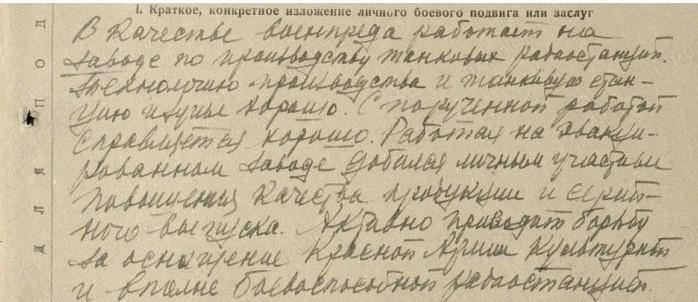 I. Краткое, конкретное изложение личного боевого подвига или заслуг
В качестве военпреда работает на
заводе по производству танковых радиостанций.
Технологию производства и танковую стан-
цию изучил хорошо. С порученной работой
справляется хорошо. Работая на эвакуи-
рованном заводе добился личным участием
повышения качества продукции и серий-
ного выпуска. Активно проводит борьбу
за оснащение Красной Армии культурной
и вполне боеспособной радиостанцией.
для под